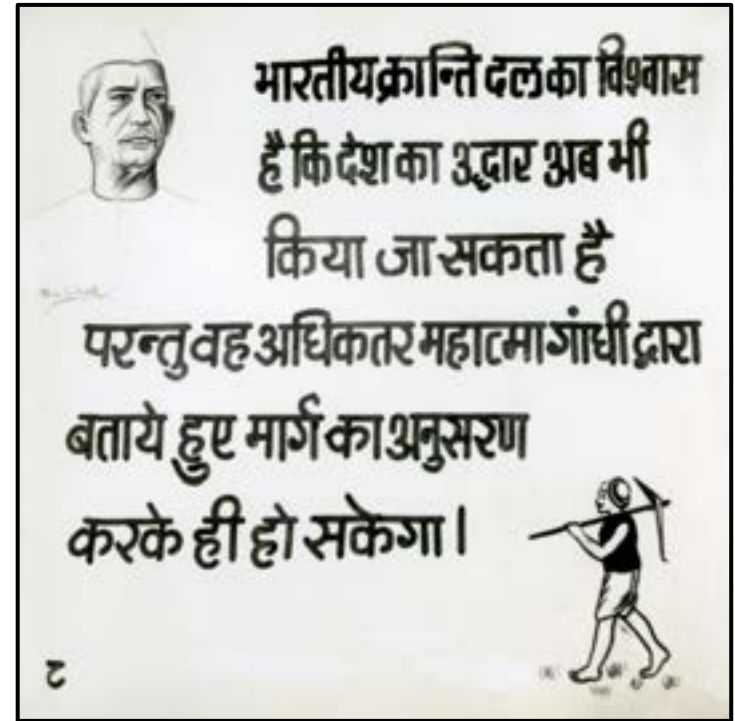 भारतीय क्रान्ति दल का विश्वास
है कि देश का उद्धार अब भी
किया जा सकता है
परन्तु वह अधिकतर महात्मा गांधी द्वारा
बताये हुए मार्ग का अनुसरण
करके ही हो सकेगा।